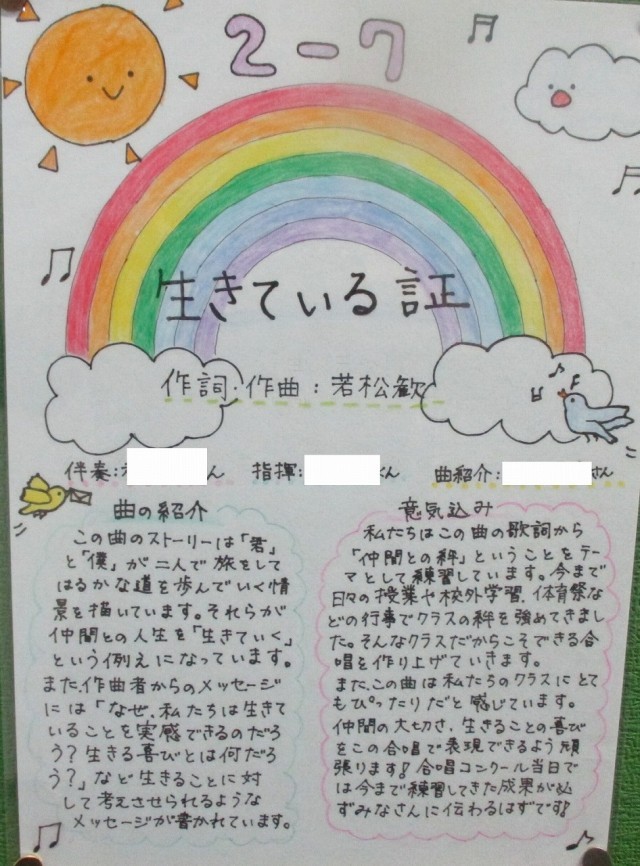 2-7
生きている証
作詞・作曲：若松歓
伴奏: ん 指揮: くん 曲紹介: さん
曲の紹介
この曲のストーリーは「君」
と「僕」が二人で旅をして
はるかな道を歩んでいく情
景を描いています。それらが
仲間との人生を「生きていく」
という例えになっています。
また、作曲者からのメッセージ
には「なぜ、私たちは生きて
いることを実感できるのだろ
う？生きる喜びとは何だろ
う？」など生きることに対
して考えさせられるような
メッセージが書かれています。
意気込み
私たちはこの曲の歌詞から
「仲間との絆」ということをテー
マとして練習しています。今まで
日々の授業や校外学習、体育祭な
どの行事でクラスの絆を強めてきまし
た。そんなクラスだからこそできる合
唱を作り上げていきます。
また、この曲は私たちのクラスにとて
もぴったりだと感じています。
仲間の大切さ、生きることの喜び
をこの合唱で表現できるよう頑
張ります!合唱コンクール当日で
は今まで練習してきた成果が必
ずみなさんに伝わるはずです!